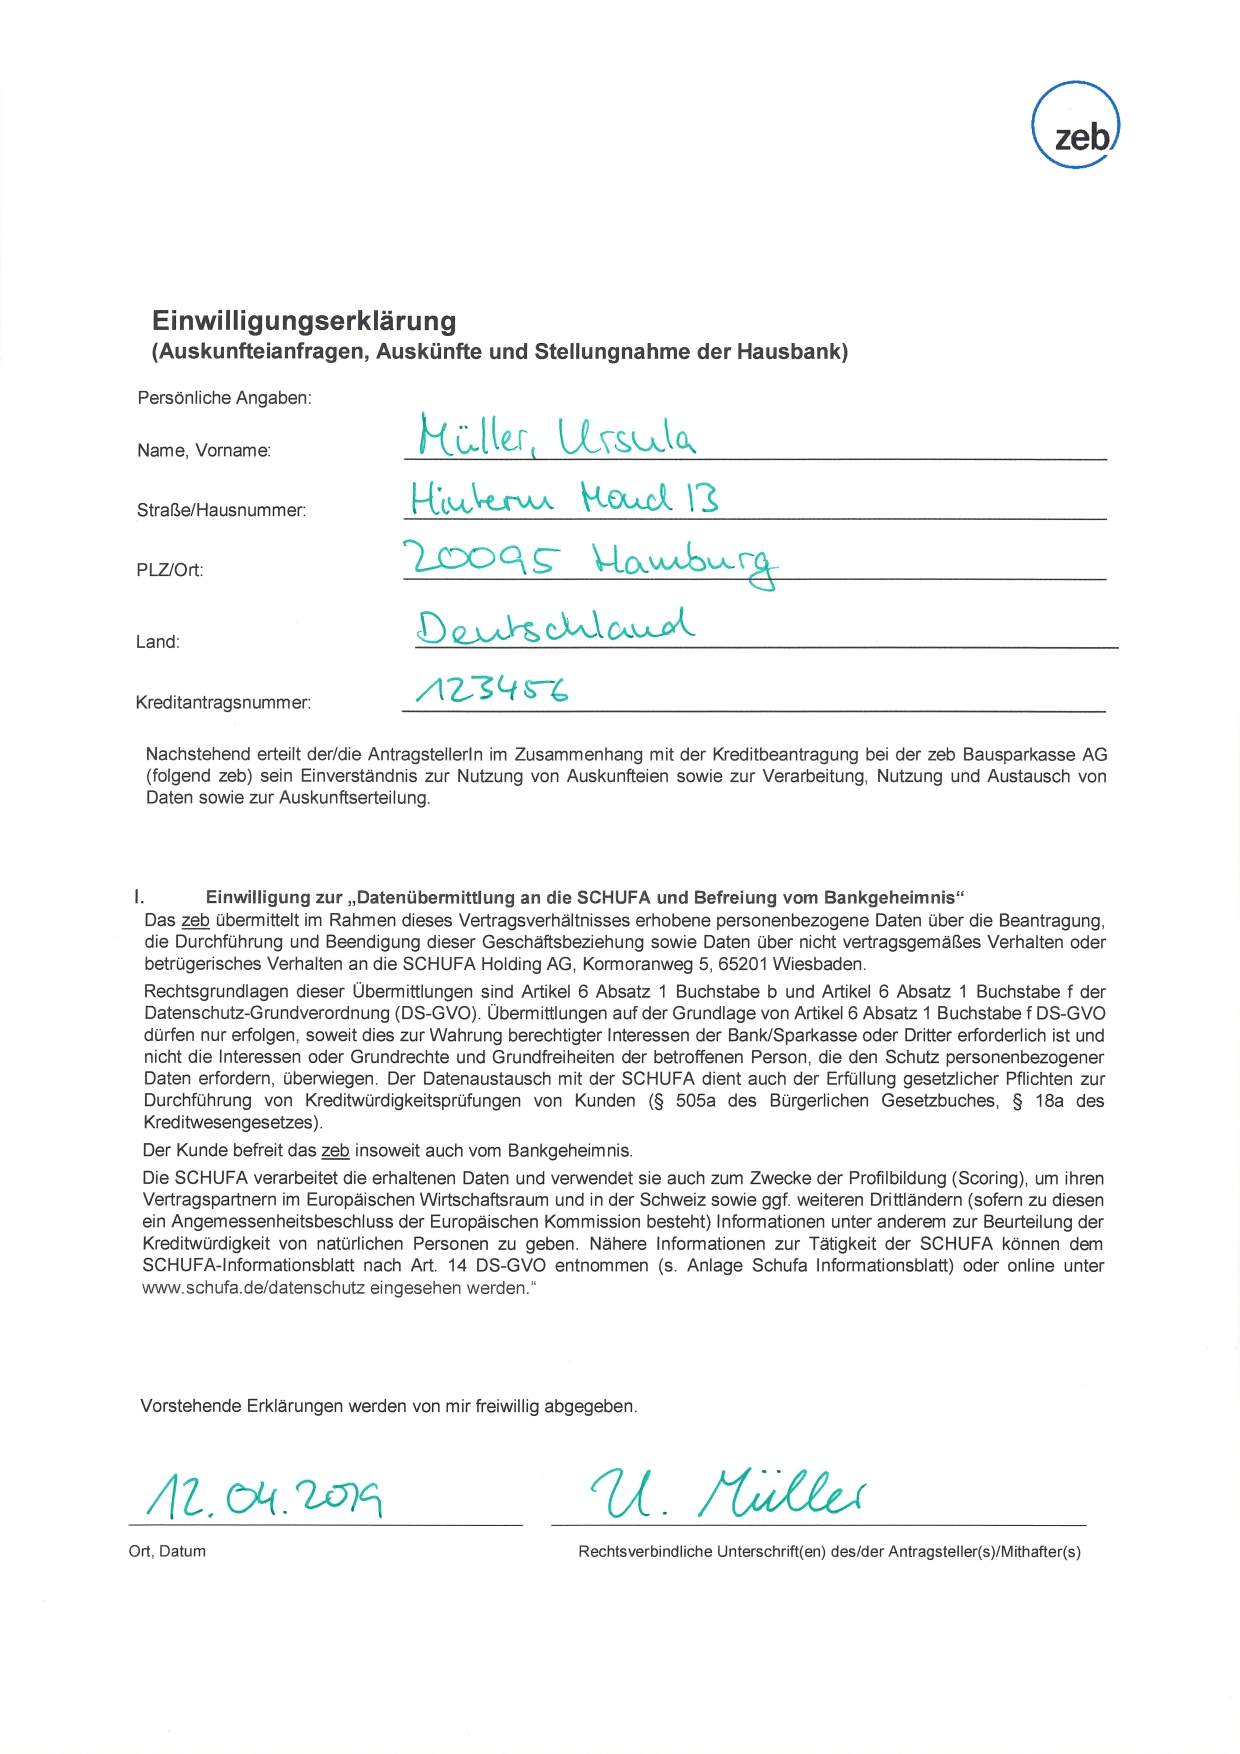 zeb
Einwilligungserklärung
(Auskunfteianfragen, Auskünfte und Stellungnahme der Hausbank)
Persönliche Angaben:
Name, Vorname: Müller, Ursula
Straße/Hausnummer: Hinterm Mond 13
PLZ/Ort: 20095 Hamburg
Land: Deutschland
Kreditantragsnummer: 123456
Nachstehend erteilt der/die AntragstellerIn im Zusammenhang mit der Kreditbeantragung bei der zeb Bausparkasse AG
(folgend zeb) sein Einverständnis zur Nutzung von Auskunfteien sowie zur Verarbeitung, Nutzung und Austausch von
Daten sowie zur Auskunftserteilung.
I. Einwilligung zur „Datenübermittlung an die SCHUFA und Befreiung vom Bankgeheimnis“
Das zeb übermittelt im Rahmen dieses Vertragsverhältnisses erhobene personenbezogene Daten über die Beantragung,
die Durchführung und Beendigung dieser Geschäftsbeziehung sowie Daten über nicht vertragsgemäßes Verhalten oder
betrügerisches Verhalten an die SCHUFA Holding AG, Kormoranweg 5, 65201 Wiesbaden.
Rechtsgrundlagen dieser Übermittlungen sind Artikel 6 Absatz 1 Buchstabe b und Artikel 6 Absatz 1 Buchstabe f der
Datenschutz-Grundverordnung (DS-GVO). Übermittlungen auf der Grundlage von Artikel 6 Absatz 1 Buchstabe f DS-GVO
dürfen nur erfolgen, soweit dies zur Wahrung berechtigter Interessen der Bank/Sparkasse oder Dritter erforderlich ist und
nicht die Interessen oder Grundrechte und Grundfreiheiten der betroffenen Person, die den Schutz personenbezogener
Daten erfordern, überwiegen. Der Datenaustausch mit der SCHUFA dient auch der Erfüllung gesetzlicher Pflichten zur
Durchführung von Kreditwürdigkeitsprüfungen von Kunden (§ 505a des Bürgerlichen Gesetzbuches, § 18a des
Kreditwesengesetzes).
Der Kunde befreit das zeb insoweit auch vom Bankgeheimnis.
Die SCHUFA verarbeitet die erhaltenen Daten und verwendet sie auch zum Zwecke der Profilbildung (Scoring), um ihren
Vertragspartnern im Europäischen Wirtschaftsraum und in der Schweiz sowie ggf. weiteren Drittländern (sofern zu diesen
ein Angemessenheitsbeschluss der Europäischen Kommission besteht) Informationen unter anderem zur Beurteilung der
Kreditwürdigkeit von natürlichen Personen zu geben. Nähere Informationen zur Tätigkeit der SCHUFA können dem
SCHUFA-Informationsblatt nach Art. 14 DS-GVO entnommen (s. Anlage Schufa Informationsblatt) oder online unter
www.schufa.de/datenschutz eingesehen werden.“
Vorstehende Erklärungen werden von mir freiwillig abgegeben.
12.04.2019 U. Müller
Ort, Datum Rechtsverbindliche Unterschrift(en) des/der Antragsteller(s)/Mithafter(s)